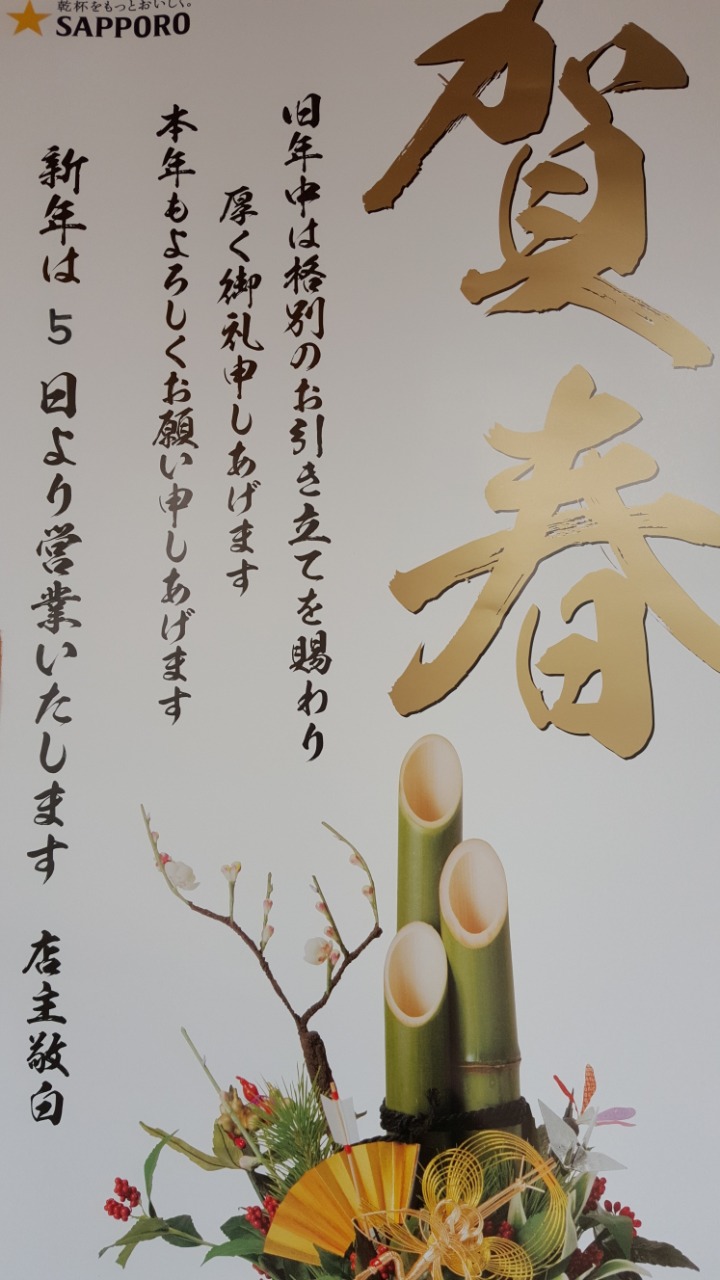 乾杯をもっとおいしく。
SAPPORO
賀春
旧年中は格別のお引き立てを賜わり
厚く御礼申しあげます
本年もよろしくお願い申しあげます
新年は 5 日より営業いたします 店主敬白